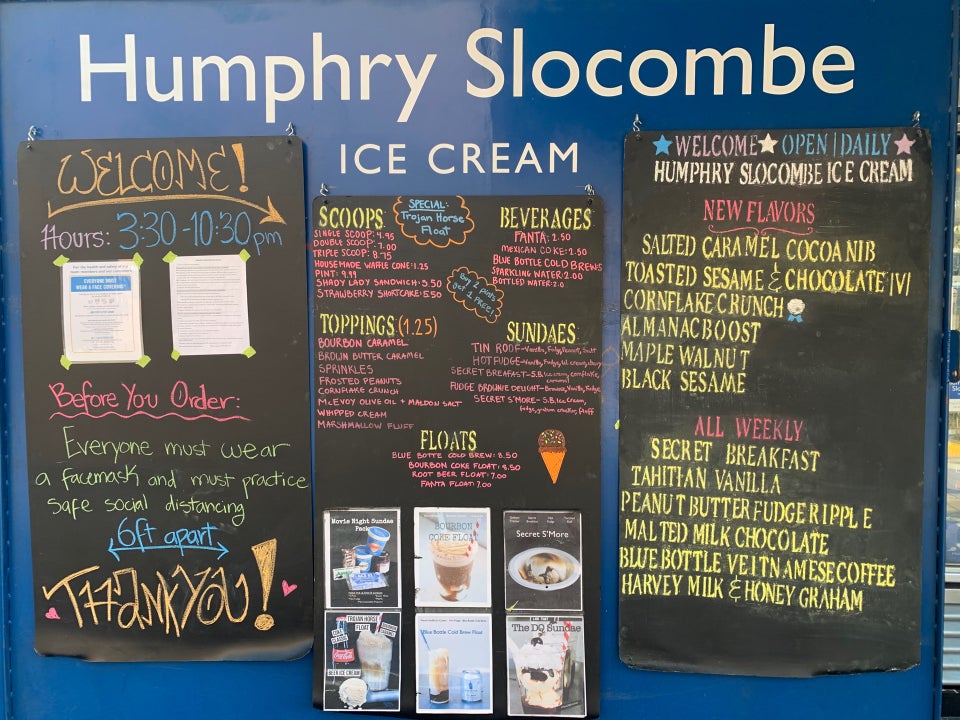 Humphry Slocombe
ICE CREAM
WELCOME!
Hours: 3:30-10:30pm
EVERYONE MUST
WEAR A FACE COVERING
Before You Order:
Everyone must wear
a facemask and must practice
safe social distancing
6ft apart
THANK YOU!
SPECIAL:
Trojan Horse
Float
SCOOPS
SINGLE SCOOP: 4.95
DOUBLE SCOOP: 7.00
TRIPLE SCOOP: 8.75
HOUSEMADE WAFFLE CONE: 1.25
PINT: 9.99
SHADY LADY SANDWICH: 5.50
STRAWBERRY SHORTCAKE: 5.50
BEVERAGES
FANTA: 2.50
MEXICAN COKE: 2.50
BLUE BOTTLE COLD BREWS
SPARKLING WATER: 2.00
BOTTLED WATER: 2.0
TOPPINGS (1.25)
BOURBON CARAMEL
BROWN BUTTER CARAMEL
SPRINKLES
FROSTED PEANUTS
CORNFLAKE CRUNCH
McEVOY OLIVE OIL + MALDON SALT
WHIPPED CREAM
MARSHMALLOW FLUFF
SUNDAES
TIN ROOF-Vanilla, Fudge, Peanut, Salt
HOT FUDGE-Vanilla, Fudge,
SECRET BREAFAST-S.B. Ice cream, cornflake,
caramel
FUDGE BROWNIE DELIGHT-Brownie, Vanilla, Fudge
SECRET S'MORE-S.B. Ice Cream,
fudge, graham cracker, fluff
FLOATS
BLUE BOTTE COLD BREW: 8.50
BOURBON COKE FLOAT: 8.50
ROOT BEER FLOAT: 7.00
FANTA FLOAT: 7.00
Movie Night Sundae
Pack
BOURBON
COKE FLOAT
Secret S'More
TROJAN HORSE
FLOAT
COCA
CLASSIC
BEER ICE CREAM
Blue Bottle Cold Brew Float
The DQ Sundae
WELCOME OPEN | DAILY
HUMPHRY SLOCOMBE ICE CREAM
NEW FLAVORS
SALTED CARAMEL COCOA NIB
TOASTED SESAME & CHOCOLATE (V)
CORNFLAKE CRUNCH
ALMANAC BOOST
MAPLE WALNUT
BLACK SESAME
ALL WEEKLY
SECRET BREAKFAST
TAHITHAN VANILLA
PEANUT BUTTER FUDGE RIPPLE
MALTED MILK CHOCOLATE
BLUE BOTTLE VEITNAMESE COFFEE
HARVEY MILK & HONEY GRAHAM